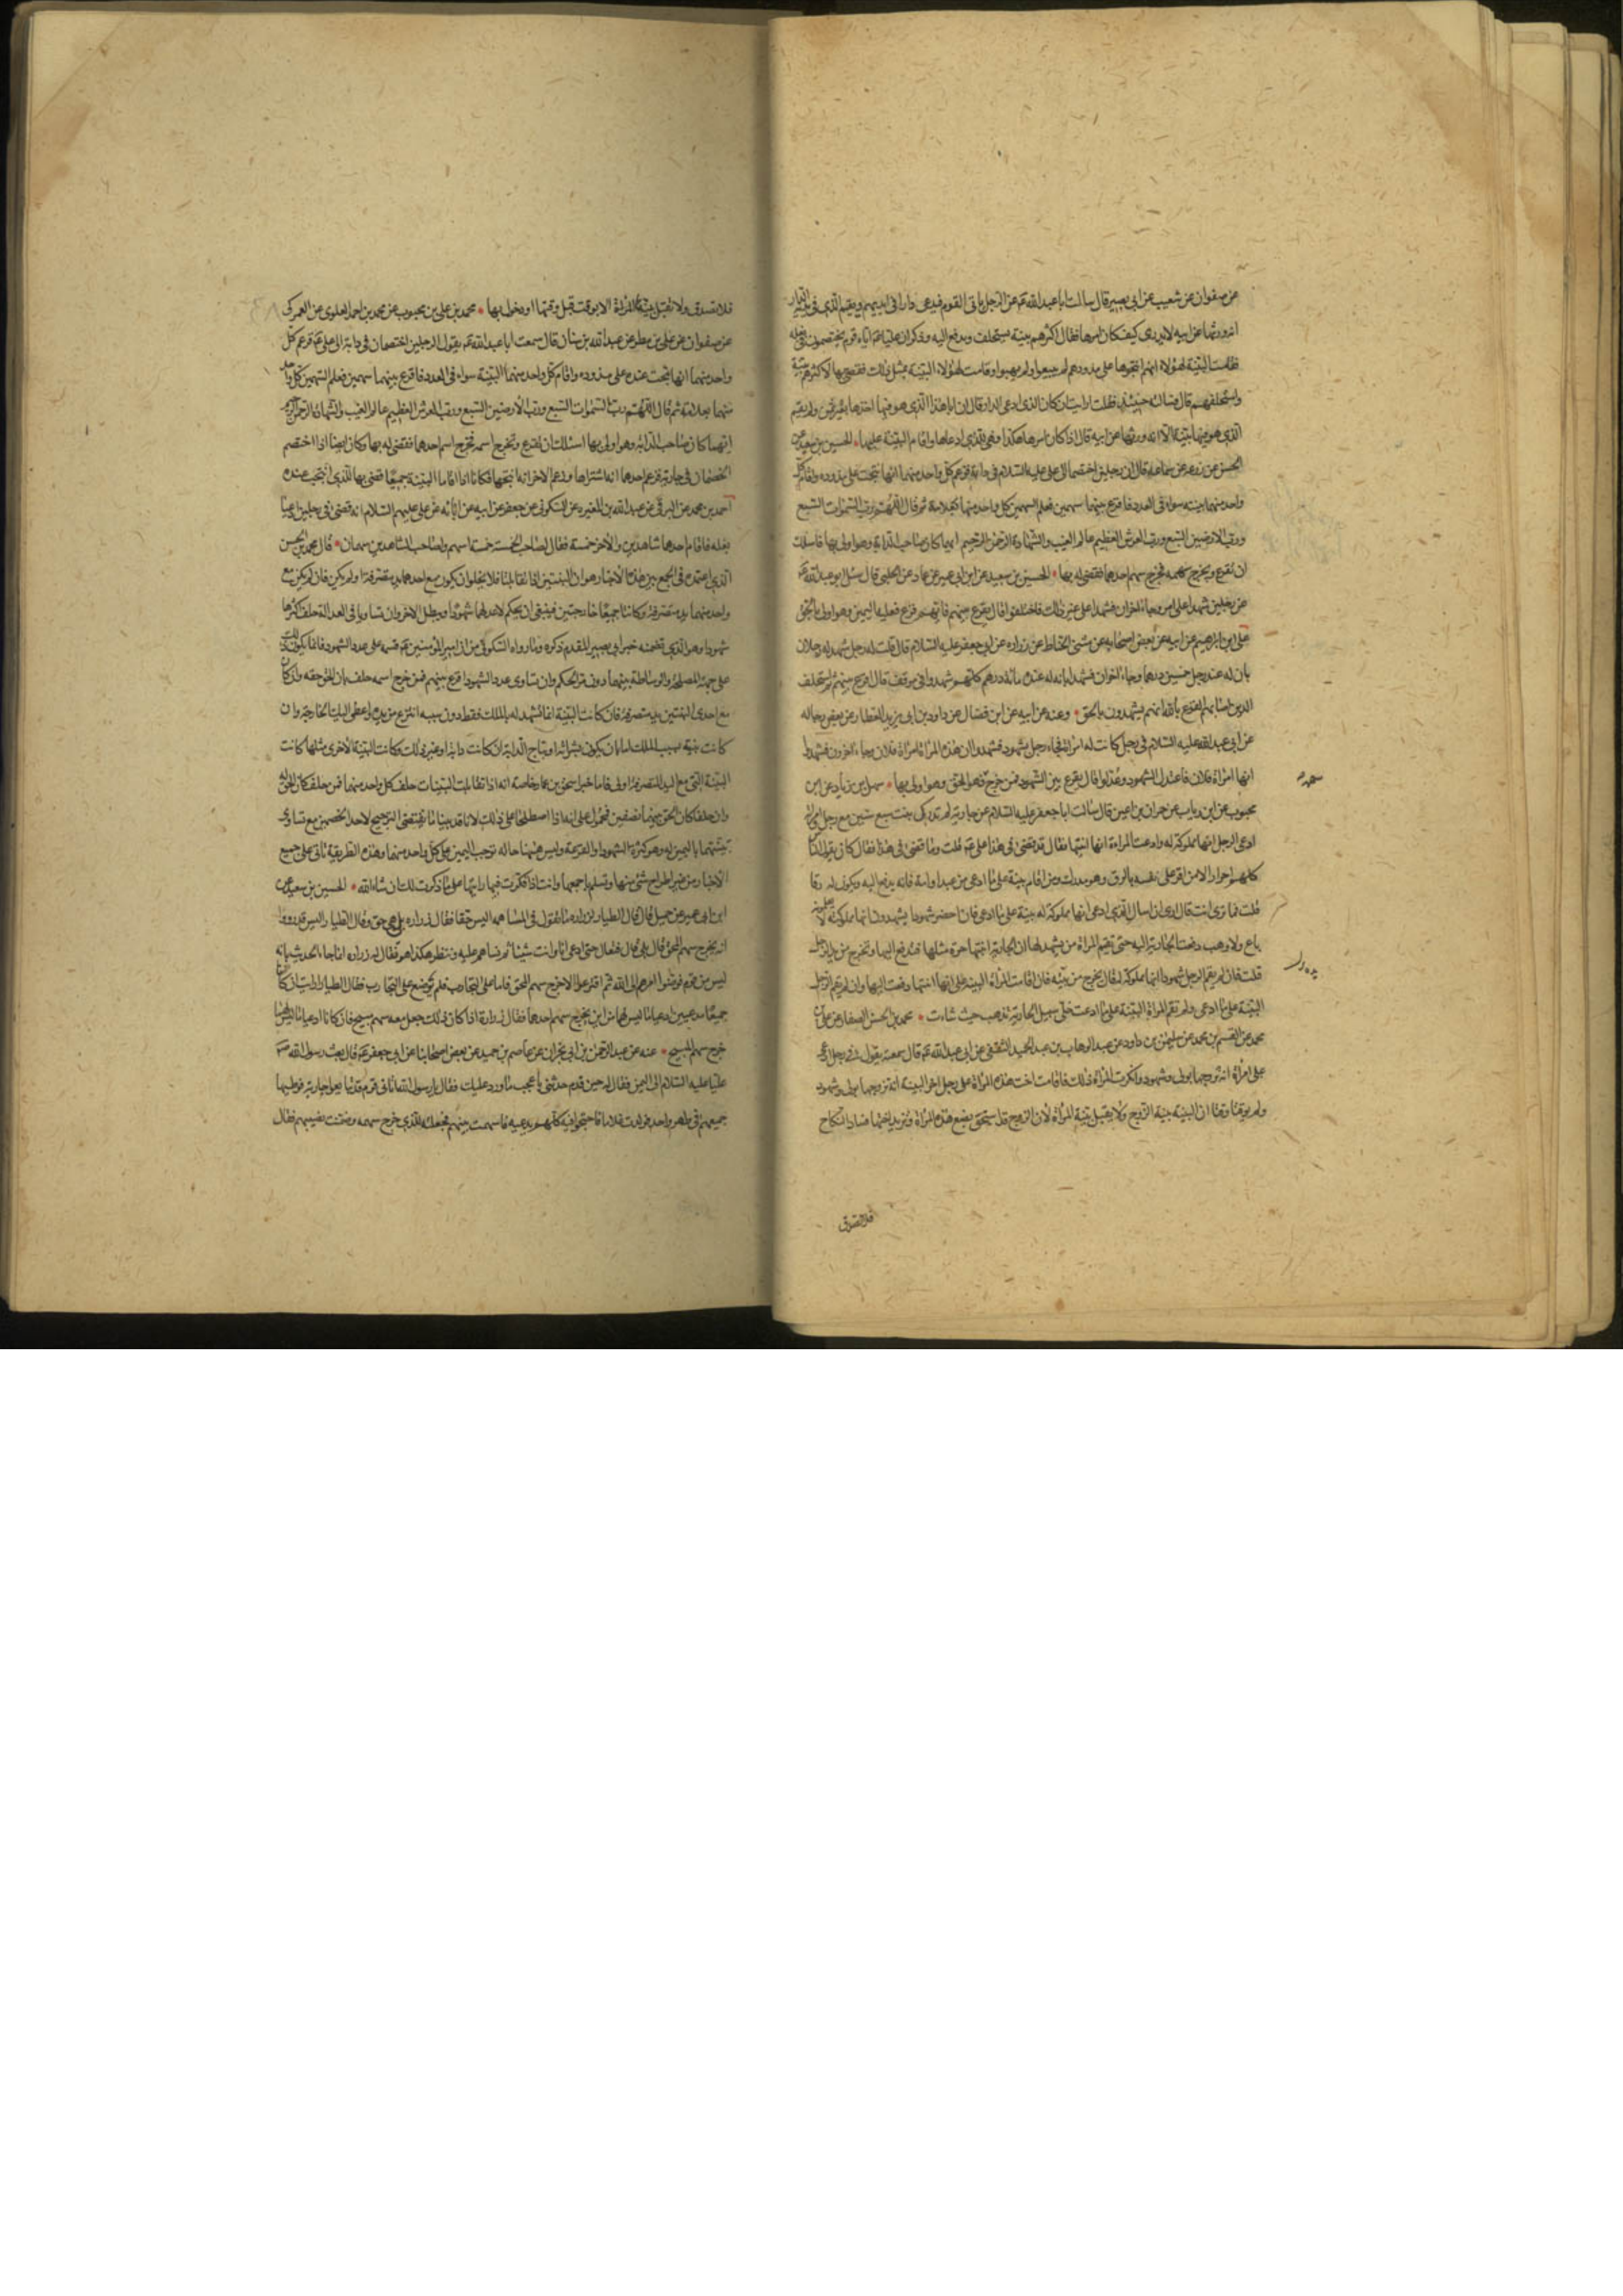 عن صفوان عن شعيب عن ابى بصير قال سالت ابا عبدالله عم عن الرجل ياتى القوم فيدعى دارا فى ايديهم ويقيم الذى فى يديه الدار
انه ورثها عن ابيه لا يدرى كيف كان امرها فقال اكثرهم بينة يستحلف ويدفع اليه وذكر ان عليا عم اتاه قوم يختصمون فى بغلة
فقامت البينة لهؤلاء انهم انتجوها على مذودهم لم يبيعوا ولم يهبوا وقامت لهؤلاء البينة بمثل ذلك فقضى بها لاكثرهم بينة
واستحلفهم قال فسالته حينئذ فقلت ارايت ان كان الذى ادعى الدار قال ان ابا هذا الذى هو فيها اخذها بغير ثمن ولم يقم
الذى هو فيها بينة الا انه ورثها عن ابيه قال اذا كان امرها هكذا فهى للذى ادعاها واقام البينة عليها • الحسين بن سعيد عن
الحسن عن زرعه عن سماعه قال ان رجلين اختصما الى على عليه السلام فى دابة فزعم كل واحد منهما انها نتجت على مذوده واقام كل
واحد منهما بينه سواء فى العدد فاقرع بينهما سهمين فعلم السهمين كل واحد منهما بعلامة ثم قال اللهم رب السموات السبع
ورب الارضين السبع ورب العرش العظيم عالم الغيب والشهادة الرحمن الرحيم ايهما كان صاحب الدابة وهو اولى بها فاسئلك
ان تقرع ويخرج سهمه فخرج سهم احدهما فقضى له بها • الحسين بن سعيد عن ابن ابى عمير عن حماد عن الحلبى قال سئل ابو عبدالله عم
عن رجلين شهدا على امر وجاء اخران فشهدا على غير ذلك فاختلفوا قال يقرع بينهم فايهم قرع فعليه اليمين وهو اولى بالحق
على بن ابرهيم عن ابيه عن بعض اصحابه عن مثنى الحناط عن زراره عن ابى جعفر عليه السلام قال قلت له رجل شهد له رجلان
بان له عند رجل خمسين درهما وجاء اخران فشهدا بانه له عنده مائة درهم كلهم شهدوا فى موقف قال اقرع بينهم ثم استحلف
الذين اصابهم القرع بالله انهم يشهدون بالحق • وعنه عن ابيه عن ابن فضال عن داود بن ابى يزيد العطار عن بعض رجاله
عن ابى عبدالله عليه السلام فى رجل كانت له امراة فجاء رجل بشهود فشهدوا ان هذه المراة امراة فلان وجاء اخرون فشهدوا
انها امراة فلان فاعتدل الشهود وعدلوا قال يقرع بين الشهود فمن خرج سهمه فهو المحق وهو اولى بها • سهل بن زياد عن ابن
محبوب عن ابن رياب عن حمران بن اعين قال سالت ابا جعفر عليه السلام عن جارية لم تدرك بنت سبع سنين مع رجل وامراة
ادعى الرجل انها مملوكة له وادعت المراة انها ابنتها فقال قد قضى فى هذا على عم قلت وما قضى فى هذا فقال كان يقول الناس
كلهم احرار الا من اقر على نفسه بالرق وهو مدرك ومن اقام بينة على ما ادعى من عبد او امة فانه يدفع اليه ويكون له رقا
قلت فما ترى انت قال ارى ان اسال الذى ادعى انها مملوكة له بينة على ما ادعى فان احضر شهودا يشهدون انها مملوكته لا يعلمونه
باع ولا وهب دفعت الجارية اليه حتى تقيم المراة من يشهد لها ان الجارية ابنتها حرة مثلها فتدفع اليها وتخرج من يد الرجل
قلت فان لم يقم الرجل شهودا انها مملوكة له قال يخرج من يديه فان اقامت المراة البينة على انها ابنتها دفعت اليها وان لم يقم الرجل
البينة على ما ادعى ولم تقم المراة البينة على ما ادعت خلى سبيل الجارية تذهب حيث شاءت • محمد بن الحسن الصفار عن على بن
محمد عن القسم بن محمد عن سليمن بن داود عن عبدالوهاب بن عبدالحميد الثقفى عن ابى عبدالله عم قال سمعته يقول فى رجل ادعى
على امراة انه تزوجها بولى وشهود وانكرت المراة ذلك فاقامت اخت هذه المراة على رجل اخر البينة انه تزوجها بولى وشهود
ولم يوقتا وقتا ان البينة بينة الزوج ولا يقبل بينة المراة لان الزوج قد استحق بضع هذه المراة وتريد اختها فساد النكاح
فلا تصدق
فلا تصدق ولا تقبل بينتها الا بوقت قبل وقتها او دخول بها • محمد بن على بن محبوب عن محمد بن احمد العلوى عن العمركى
عن صفوان عن على بن مطر عن عبدالله بن سنان قال سمعت ابا عبدالله عم يقول ان رجلين اختصمان فى دابة الى على عم فزعم كل
واحد منهما انها نتجت عنده على مذوده واقام كل واحد منهما البينة سواء فى العدد فاقرع بينهما سهمين فعلم السهمين كل واحد
منهما بعلامة ثم قال اللهم رب السموات السبع ورب الارضين السبع ورب العرش العظيم عالم الغيب والشهادة الرحمن الرحيم
ايهما كان صاحب الدابة وهو اولى بها اسئلك ان تقرع وتخرج اسمه فخرج اسم احدهما فقضى له بها وكان ايضا اذا اختصم
الخصمان فى جارية فزعم احدهما انه اشتراها وزعم الاخر انه انتجها فكانا اذا اقاما البينة جميعا قضى بها للذى انتجت عنده
احمد بن محمد عن البرقى عن عبدالله بن المغيره عن السكونى عن جعفر عن ابيه عن ابائه عن على عليهم السلام انه قضى فى رجلين ادعيا
بغله فاقام احدهما شاهدين والاخر خمسة فقال لصاحب الخمسة خمسة اسهم ولصاحب الشاهدين سهمان • قال محمد بن الحسن
الذى اعتمده فى الجمع بين هذه الاخبار هو ان البينتين اذا تقابلتا فلا يخلو ان يكون مع احدهما يد متصرفة او لم يكن فان لم يكن مع
واحد منهما يد متصرفة وكانتا جميعا خارجتين فينبغى ان يحكم لاعدلهما شهودا ويبطل الاخر وان تساويا فى العدالة حلف اكثرهما
شهودا وهو الذى تضمنه خبر ابى بصير المقدم ذكره وما رواه السكونى من ان امير المؤمنين عم قسمه على عدد الشهود فانما يكون ذلك
على جهة المصلحة والوساطة بينهما دون مر الحكم وان تساوى عدد الشهود اقرع بينهم فمن خرج اسمه حلف بان الحق حقه وان كان
مع احدى البينتين يد متصرفة فان كانت البينة انما تشهد له بالملك فقط دون سببه انتزع من يده واعطى اليد الخارجة وان
كانت بينة بسبب الملك اما بان يكون بشرائه او نتاج الدابة ان كانت دابة او غير ذلك وكانت البينة الاخرى مثلها كانت
البينة التى مع اليد المتصرفة اولى فاما خبر اسحق بن عمار خاصة انه اذا تقابلت البينات حلف كل واحد منهما فمن حلف كان الحق له
وان حلفا كان الحق بينهما نصفين فمحمول على انه اذا اصطلحا على ذلك لانا قد بينا ما يقتضى الترجيح لاحد الخصمين مع تساوى
بينتهما باليمين له وهو كثرة الشهود او القرعة وليس هيهنا حاله توجب اليمين على كل واحد منهما وهذه الطريقة تاتى على جميع
الاخبار من غير اطراح شئ منها وتسلم باجمعها وانت اذا فكرت فيها رايتها على ما ذكرت لك ان شاء الله • الحسين بن سعيد عن
ابن ابى عمير عن جميل قال قال الطيار لزراره ما تقول فى المساهمه اليس حقا فقال زراره بل هى حق وقال الطيار اليس قد رووا
انه يخرج سهم المحق قال بلى قال فتعال حتى ادعى انا وانت شيئا ثم نساهم عليه وننظر هكذا هو فقال له زراره انما جاء الحديث بانه
ليس من قوم فوضوا امرهم الى الله ثم اقترعوا الا خرج سهم المحق فاما على التجارب فلم يوضع على التجارب فقال الطيار ارايت ان كانا
جميعا مدعيين ادعيا ما ليس لهما من اين يخرج سهم احدهما فقال زرارة اذا كان ذلك جعل معه سهم مبيح فان كانا ادعيا ما ليس لهما
خرج سهم المبيح • عنه عن عبدالرحمن بن ابى نجران عن عاصم بن حميد عن بعض اصحابنا عن ابى جعفر عم قال بعث رسول الله ص
عليا عليه السلام الى اليمن فقال له حين قدم حدثنى باعجب ما ورد عليك فقال يا رسول الله اتانى قوم قد تبايعوا جارية فوطيها
جميعهم فى طهر واحد فولدت غلاما فاحتجوا فيه كلهم يدعيه فاسهمت بينهم فجعلته للذى خرج سهمه وضمنته نصيبهم فقال